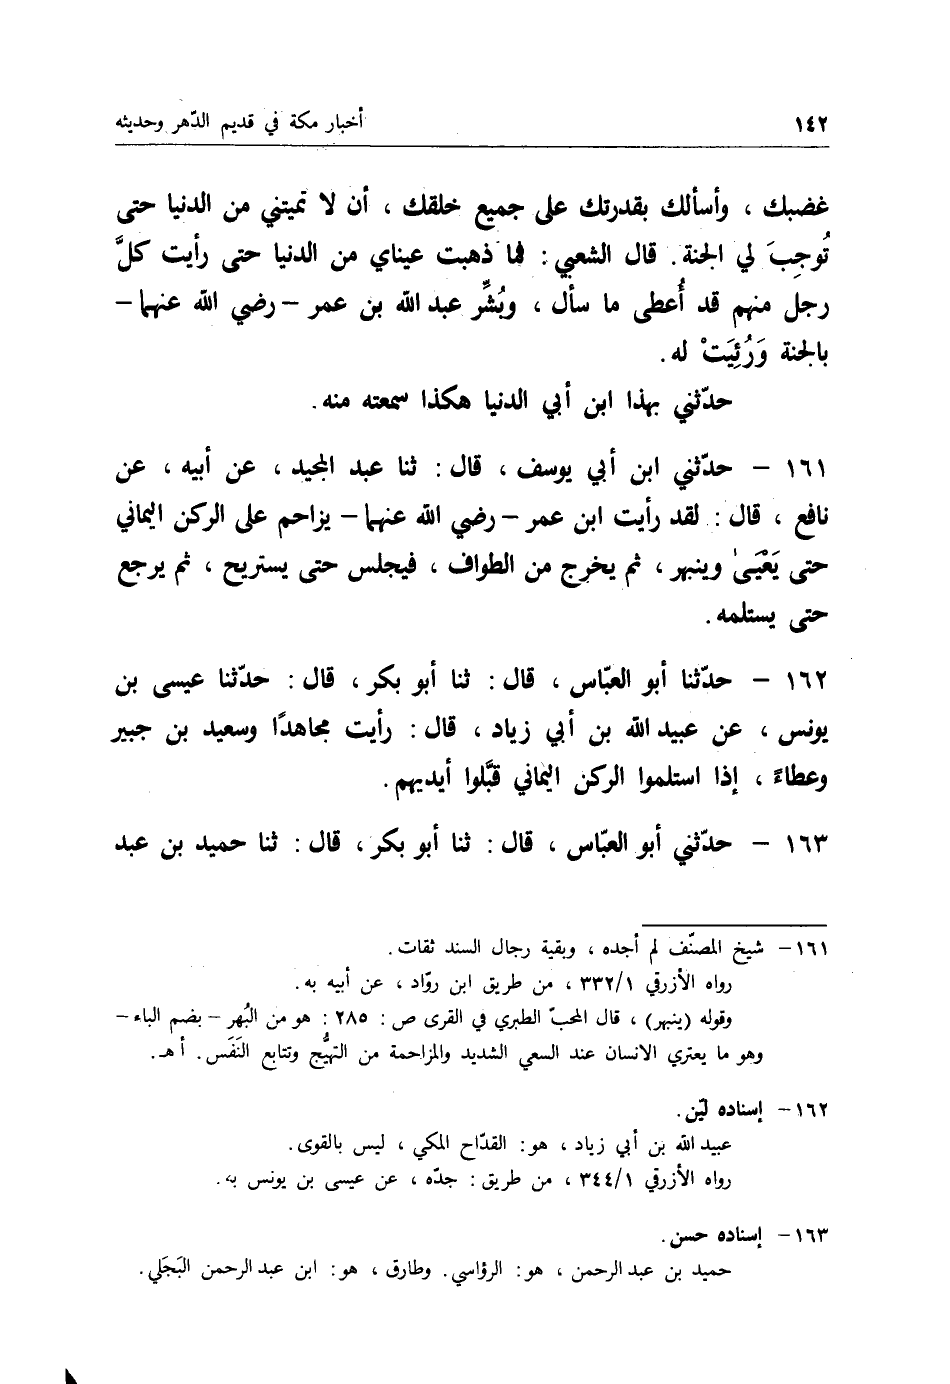 ١٤٢ أخبار مكة في قديم الدّهر وحديثه
غضبك ، وأسألك بقدرتك على جميع خلقك ، أن لا تميتني من الدنيا حتى
تُوجِبَ لي الجنة. قال الشعبي : فما ذهبت عيناي من الدنيا حتى رأيت كلَّ
رجل منهم قد أُعطى ما سأل ، وبُشِّر عبد الله بن عمر – رضي الله عنهما –
بالجنة وَرُئِيَتْ له.
حدّثني بهذا ابن أبي الدنيا هكذا سمعته منه.
١٦١ – حدّثني ابن أبي يوسف ، قال : ثنا عبد المجيد ، عن أبيه ، عن
نافع ، قال : لقد رأيت ابن عمر – رضي الله عنهما – يزاحم على الركن اليماني
حتى يَعْيَىٰ وينبهر ، ثم يخرج من الطواف ، فيجلس حتى يستريح ، ثم يرجع
حتى يستلمه.
١٦٢ – حدّثنا أبو العبّاس ، قال : ثنا أبو بكر ، قال : حدّثنا عيسى بن
يونس ، عن عبيد الله بن أبي زياد ، قال : رأيت مجاهدًا وسعيد بن جبير
وعطاءً ، إذا استلموا الركن اليماني قبَّلوا أيديهم.
١٦٣ – حدّثني أبو العبّاس ، قال : ثنا أبو بكر ، قال : ثنا حميد بن عبد
١٦١ – شيخ المصنّف لم أجده ، وبقية رجال السند ثقات.
رواه الأزرقي ٣٣٢/١ ، من طريق ابن روّاد ، عن أبيه به.
وقوله (ينبهر) ، قال المحبّ الطبري في القرى ص : ٢٨٥ : هو من البُهر – بضم الباء –
وهو ما يعتري الانسان عند السعي الشديد والمزاحمة من التهيُّج وتتابع النَفَس. أ هـ.
١٦٢ – إسناده ليّن.
عبيد الله بن أبي زياد ، هو : القدّاح المكي ، ليس بالقوى.
رواه الأزرقي ٣٤٤/١ ، من طريق : جدّه ، عن عيسى بن يونس به.
١٦٣ – إسناده حسن.
حميد بن عبد الرحمن ، هو : الرؤاسي. وطارق ، هو : ابن عبد الرحمن البَجَلي.